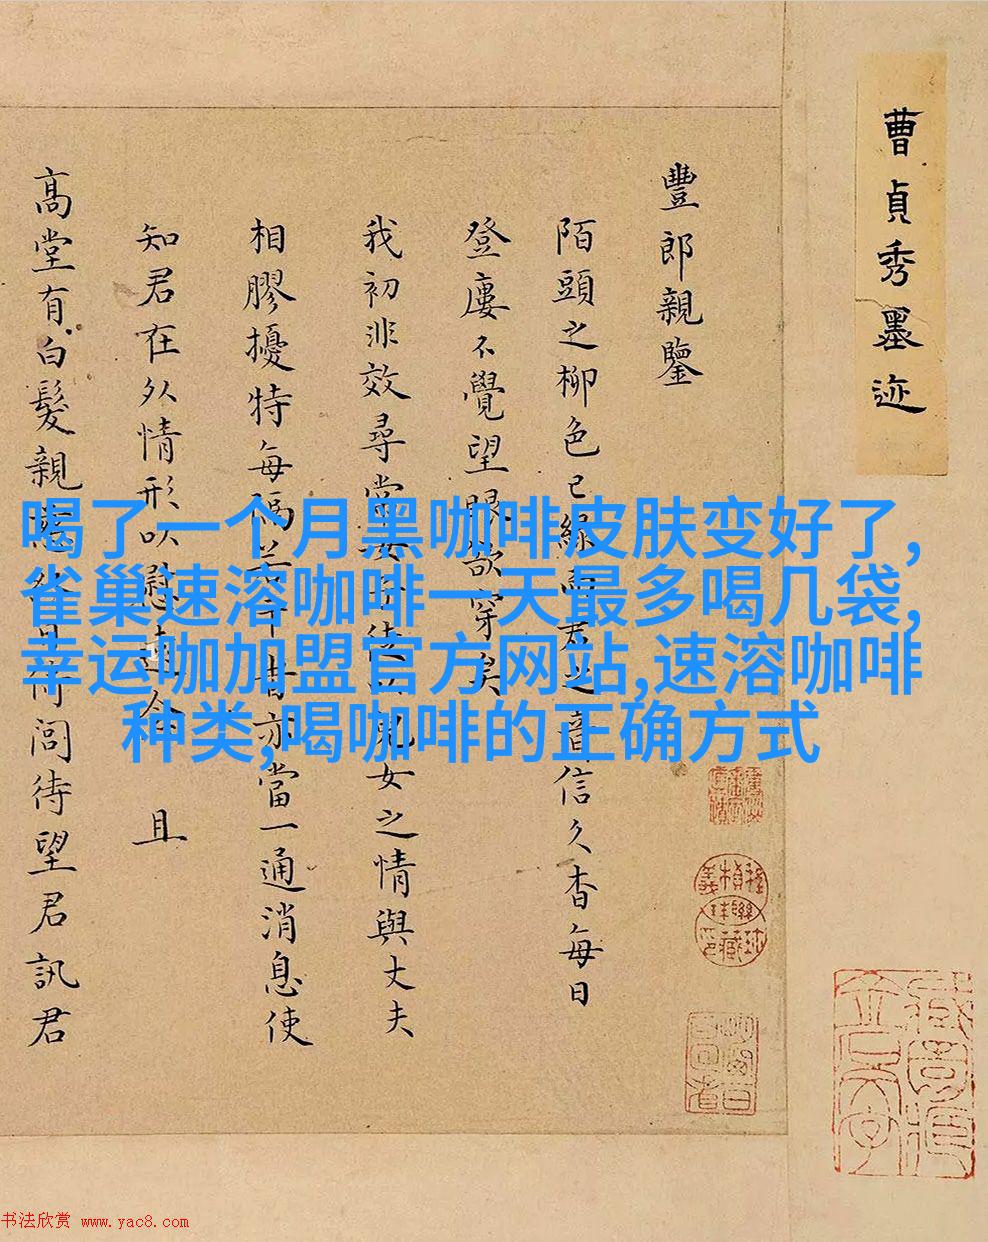 曹貞秀墨迹
豐郎親鑒
陌頭之柳色已綠而君之音信久杳每日
登廔不覺望眼欲穿矣
我初非效尋常女子徒以兒女之情與丈夫
相膠擾特每隔亦當一通消息使
知君在外情形以慰遠念 且
高堂有白髮親日倚閭待望君訊君
喝了一个月黑咖啡皮肤变好了,
雀巢速溶咖啡一天最多喝几袋,
幸运咖加盟官方网站,速溶咖啡
种类,喝咖啡的正确方式
书法欣赏 www.yac8.com